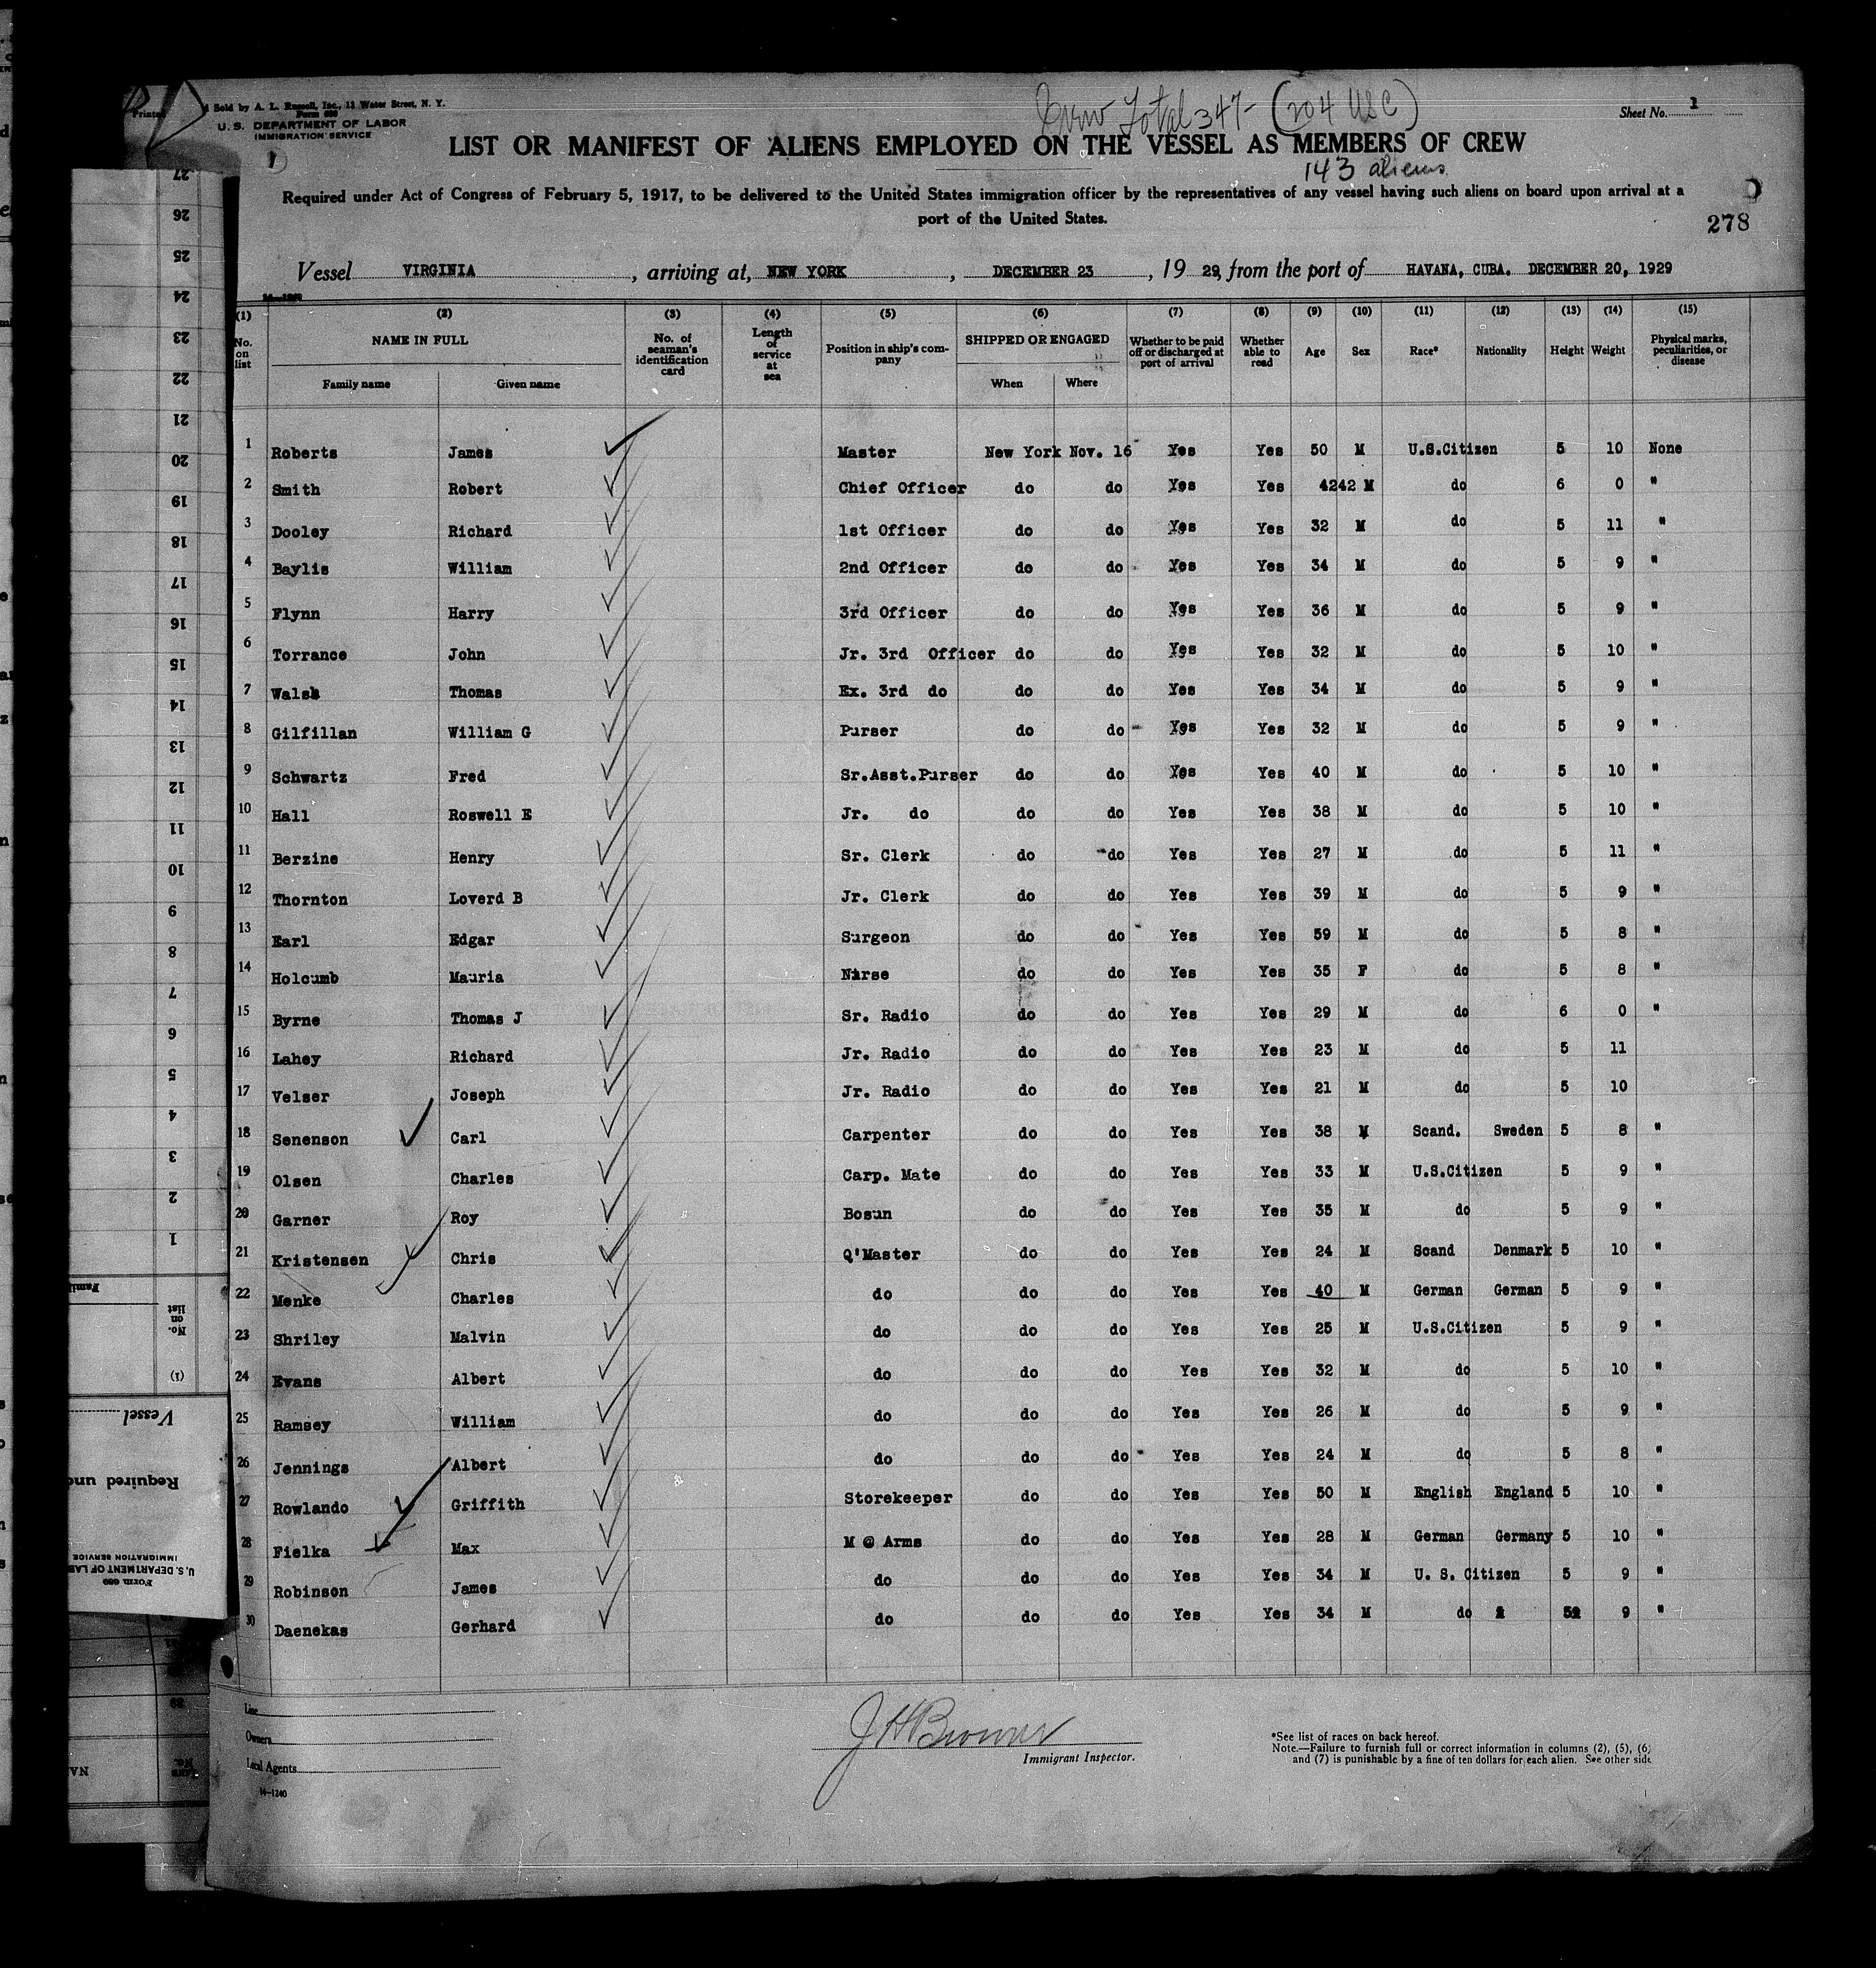 Printed & Sold by A. L. Russell, Inc., 13 Water Street, N. Y.
Form 680
U. S. DEPARTMENT OF LABOR
IMMIGRATION SERVICE
Crew Total 347- (204 USC)
Sheet No. 1
LIST OR MANIFEST OF ALIENS EMPLOYED ON THE VESSEL AS MEMBERS OF CREW
143 aliens
Required under Act of Congress of February 5, 1917, to be delivered to the United States immigration officer by the representatives of any vessel having such aliens on board upon arrival at a
port of the United States.
278
Vessel VIRGINIA, arriving at, NEW YORK, DECEMBER 23, 19 29, from the port of HAVANA, CUBA. DECEMBER 20, 1929
(1) (2) (3) (4) (5) (6) (7) (8) (9) (10) (11) (12) (13) (14) (15)
No. on list NAME IN FULL Family name Given name No. of seaman's identification card Length of service at sea Position in ship's company SHIPPED OR ENGAGED When Where Whether to be paid off or discharged at port of arrival Whether able to read Age Sex Race* Nationality Height Weight Physical marks, peculiarities, or disease
1 Roberts James Master New York Nov. 16 Yes Yes 50 M U.S.Citizen 5 10 None
2 Smith Robert Chief Officer do do Yes Yes 4242 M do 6 0 "
3 Dooley Richard 1st Officer do do Yes Yes 32 M do 5 11 "
4 Baylis William 2nd Officer do do Yes Yes 34 M do 5 9 "
5 Flynn Harry 3rd Officer do do Yes Yes 36 M do 5 9 "
6 Torrance John Jr. 3rd Officer do do Yes Yes 32 M do 5 10 "
7 Walsh Thomas Ex. 3rd do do do Yes Yes 34 M do 5 9 "
8 Gilfillan William G Purser do do Yes Yes 32 M do 5 9 "
9 Schwartz Fred Sr.Asst.Purser do do Yes Yes 40 M do 5 10 "
10 Hall Roswell E Jr. do do do Yes Yes 38 M do 5 10 "
11 Berzine Henry Sr. Clerk do do Yes Yes 27 M do 5 11 "
12 Thornton Loverd B Jr. Clerk do do Yes Yes 39 M do 5 9 "
13 Earl Edgar Surgeon do do Yes Yes 59 M do 5 8 "
14 Holcumb Mauria Nirse do do Yes Yes 35 F do 5 8 "
15 Byrne Thomas J Sr. Radio do do Yes Yes 29 M do 6 0 "
16 Lahey Richard Jr. Radio do do Yes Yes 23 M do 5 11
17 Velser Joseph Jr. Radio do do Yes Yes 21 M do 5 10
18 Senenson Carl Carpenter do do Yes Yes 38 M Scand. Sweden 5 8 "
19 Olsen Charles Carp. Mate do do Yes Yes 33 M U.S.Citizen 5 9 "
20 Garner Roy Bosun do do Yes Yes 35 M do 5 9 "
21 Kristensen Chris Q'Master do do Yes Yes 24 M Scand Denmark 5 10 "
22 Menke Charles do do do Yes Yes 40 M German German 5 9 "
23 Shriley Malvin do do do Yes Yes 25 M U.S.Citizen 5 9 "
24 Evans Albert do do do Yes Yes 32 M do 5 10 "
25 Ramsey William do do do Yes Yes 26 M do 5 9 "
26 Jennings Albert do do do Yes Yes 24 M do 5 8 "
27 Rowlando Griffith Storekeeper do do Yes Yes 50 M English England 5 10 "
28 Fielka Max M @ Arms do do Yes Yes 28 M German Germany 5 10 "
29 Robinson James do do do Yes Yes 34 M U. S. Citizen 5 9 "
30 Daenekas Gerhard do do do Yes Yes 34 M do 5 9 "
Line
Owners
Local Agents
14—1240
J H Brower
Immigrant Inspector.
*See list of races on back hereof.
Note.—Failure to furnish full or correct information in columns (2), (5), (6)
and (7) is punishable by a fine of ten dollars for each alien. See other side
27
26
25
24
23
22
21
20
19
18
17
16
15
14
13
12
11
10
9
8
7
6
5
4
3
2
1
No. on list
(1)
Vessel
Required und
IMMIGRATION SERVICE
U. S. DEPARTMENT OF LAB
Form 680